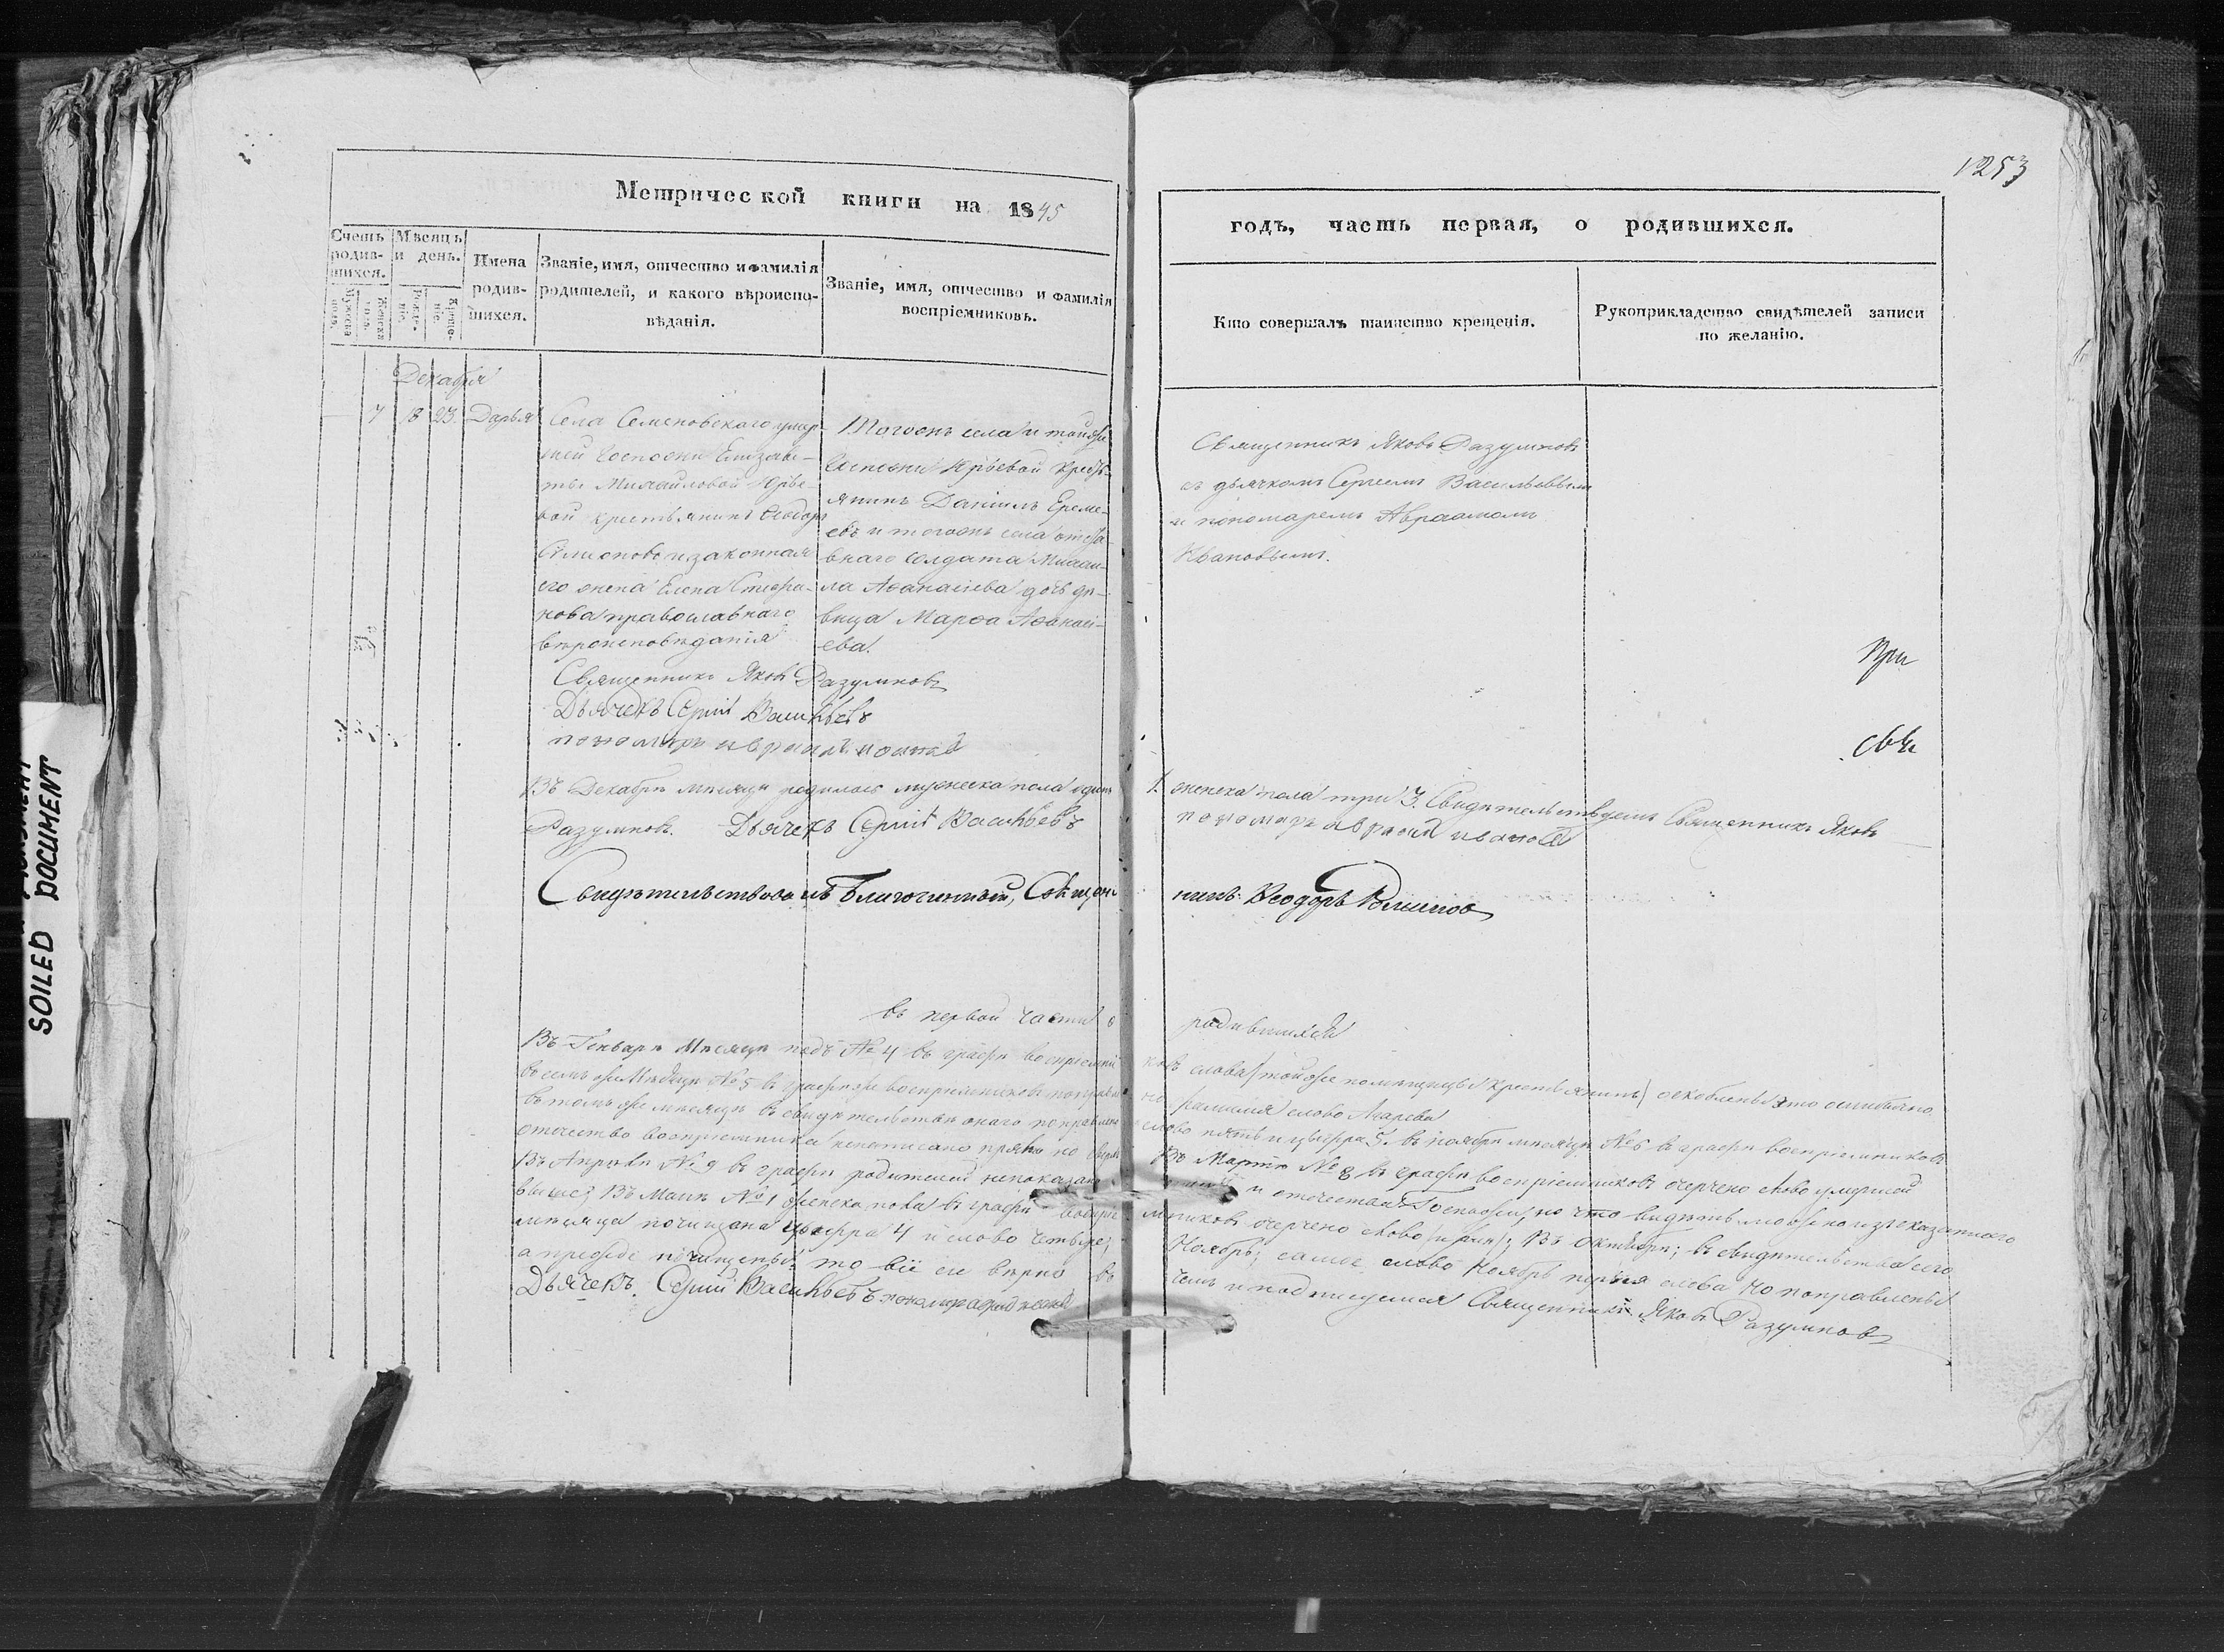 1253
Метрической книги на 1845
годъ, часть первая, о родившихся.
Счетъ родив-шихся.
Мужеска полъ.
Женска полъ.
Мѣсяцъ и день.
Рожде-ніе.
Креще-ніе.
Имена родив-шихся.
Званіе, имя, отчество и фамилія
родителей, и какого вѣроиспо-
вѣданія.
Званіе, имя, отчество и фамилія
воспріемниковъ.
Кто совершалъ таинство крещенія.
Рукоприкладство свидѣтелей записи
по желанію.
Декабря
7 18 23. Дарья
Села Семеновскаго умер-
шей Госпожи Елизаве-
ты Михайловой Юрье-
вой крестьянинъ Ѳеодоръ
Симоновъ и законная
его жена Елена Стефа-
нова православнаго
вѣроисповѣданія
Тогожъ села и тойже
Госпожи Юрьевой кресть-
янинъ Даніилъ Ереме-
евъ и тогожъ села отста-
внаго солдата Михаи-
ла Аѳанасіева дочь дѣ-
вица Марѳа Аѳанасі-
ева.
Священникъ Яковъ Разумновъ
съ дьячкомъ Сергіемъ Васильевымъ
и пономаремъ Авраамомъ
Ивановымъ.
Священникъ Яковъ Разумновъ
Дьячекъ Сергій Васильевъ
пономарь
При
свѣ
Въ Декабрѣ мѣсяцѣ родилось мужеска пола одинъ
1. женска пола три 3. Свидѣтельствуемъ Священникъ Яковъ
Разумновъ. Дьячекъ Сергій Васильевъ
пономарь авраамъ ивановъ
Свидѣтельствовалъ Благочинный, Священ-
никъ Ѳеодоръ
въ первой части о
родившихся
Въ Генварѣ Мѣсяцѣ подъ № 4 въ графѣ воспріемни-
ковъ слова (тойже помѣщицы крестьянинъ) оскоблены это ошибкою
въ семъ же Мѣсяцѣ № 5 въ графѣ же воспріемниковъ поправле-
но фамилія слово Азарева
въ томъ же мѣсяцѣ въ свидѣтельствѣ онаго поправлено
слово пять и цыфра 5. въ ноябрѣ мѣсяцѣ № 6 въ графѣ воспріемниковъ
отчество воспріемника написано прямо но
Въ Мартѣ № 8 въ графѣ воспріемниковъ очерчено слово умершей
Въ Апрѣлѣ № 9 въ графѣ родителей непоказано
и отечества Госпожи, но что видѣть можно изъ сказаннаго
выше; Въ Маіѣ № 1 женска пола въ графѣ воспріе-
мниковъ очерчено слово; Въ Октябрѣ; въ свидѣтельствѣ сего
мѣсяца почищена цыфра 4 и слово четыре;
Ноябрь; самое слово Ноябрь первыя слова Но поправлены
а прежде почищены: то все сіе вѣрно въ
чемъ и подписуемся Священникъ Яковъ Разумновъ
Дьячекъ Сергій Васильевъ
SOILED DOCUMENT